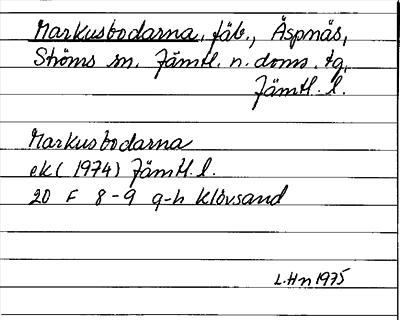 Markusbodarna, fäb., Äspnäs,
Ströms sn. Jämtl. n. doms. tg,
Jämtl. l.
Markusbodarna
ek (1974) Jämtl. l.
20 F 8-9 g-h Klövsand
L.Hn 1975